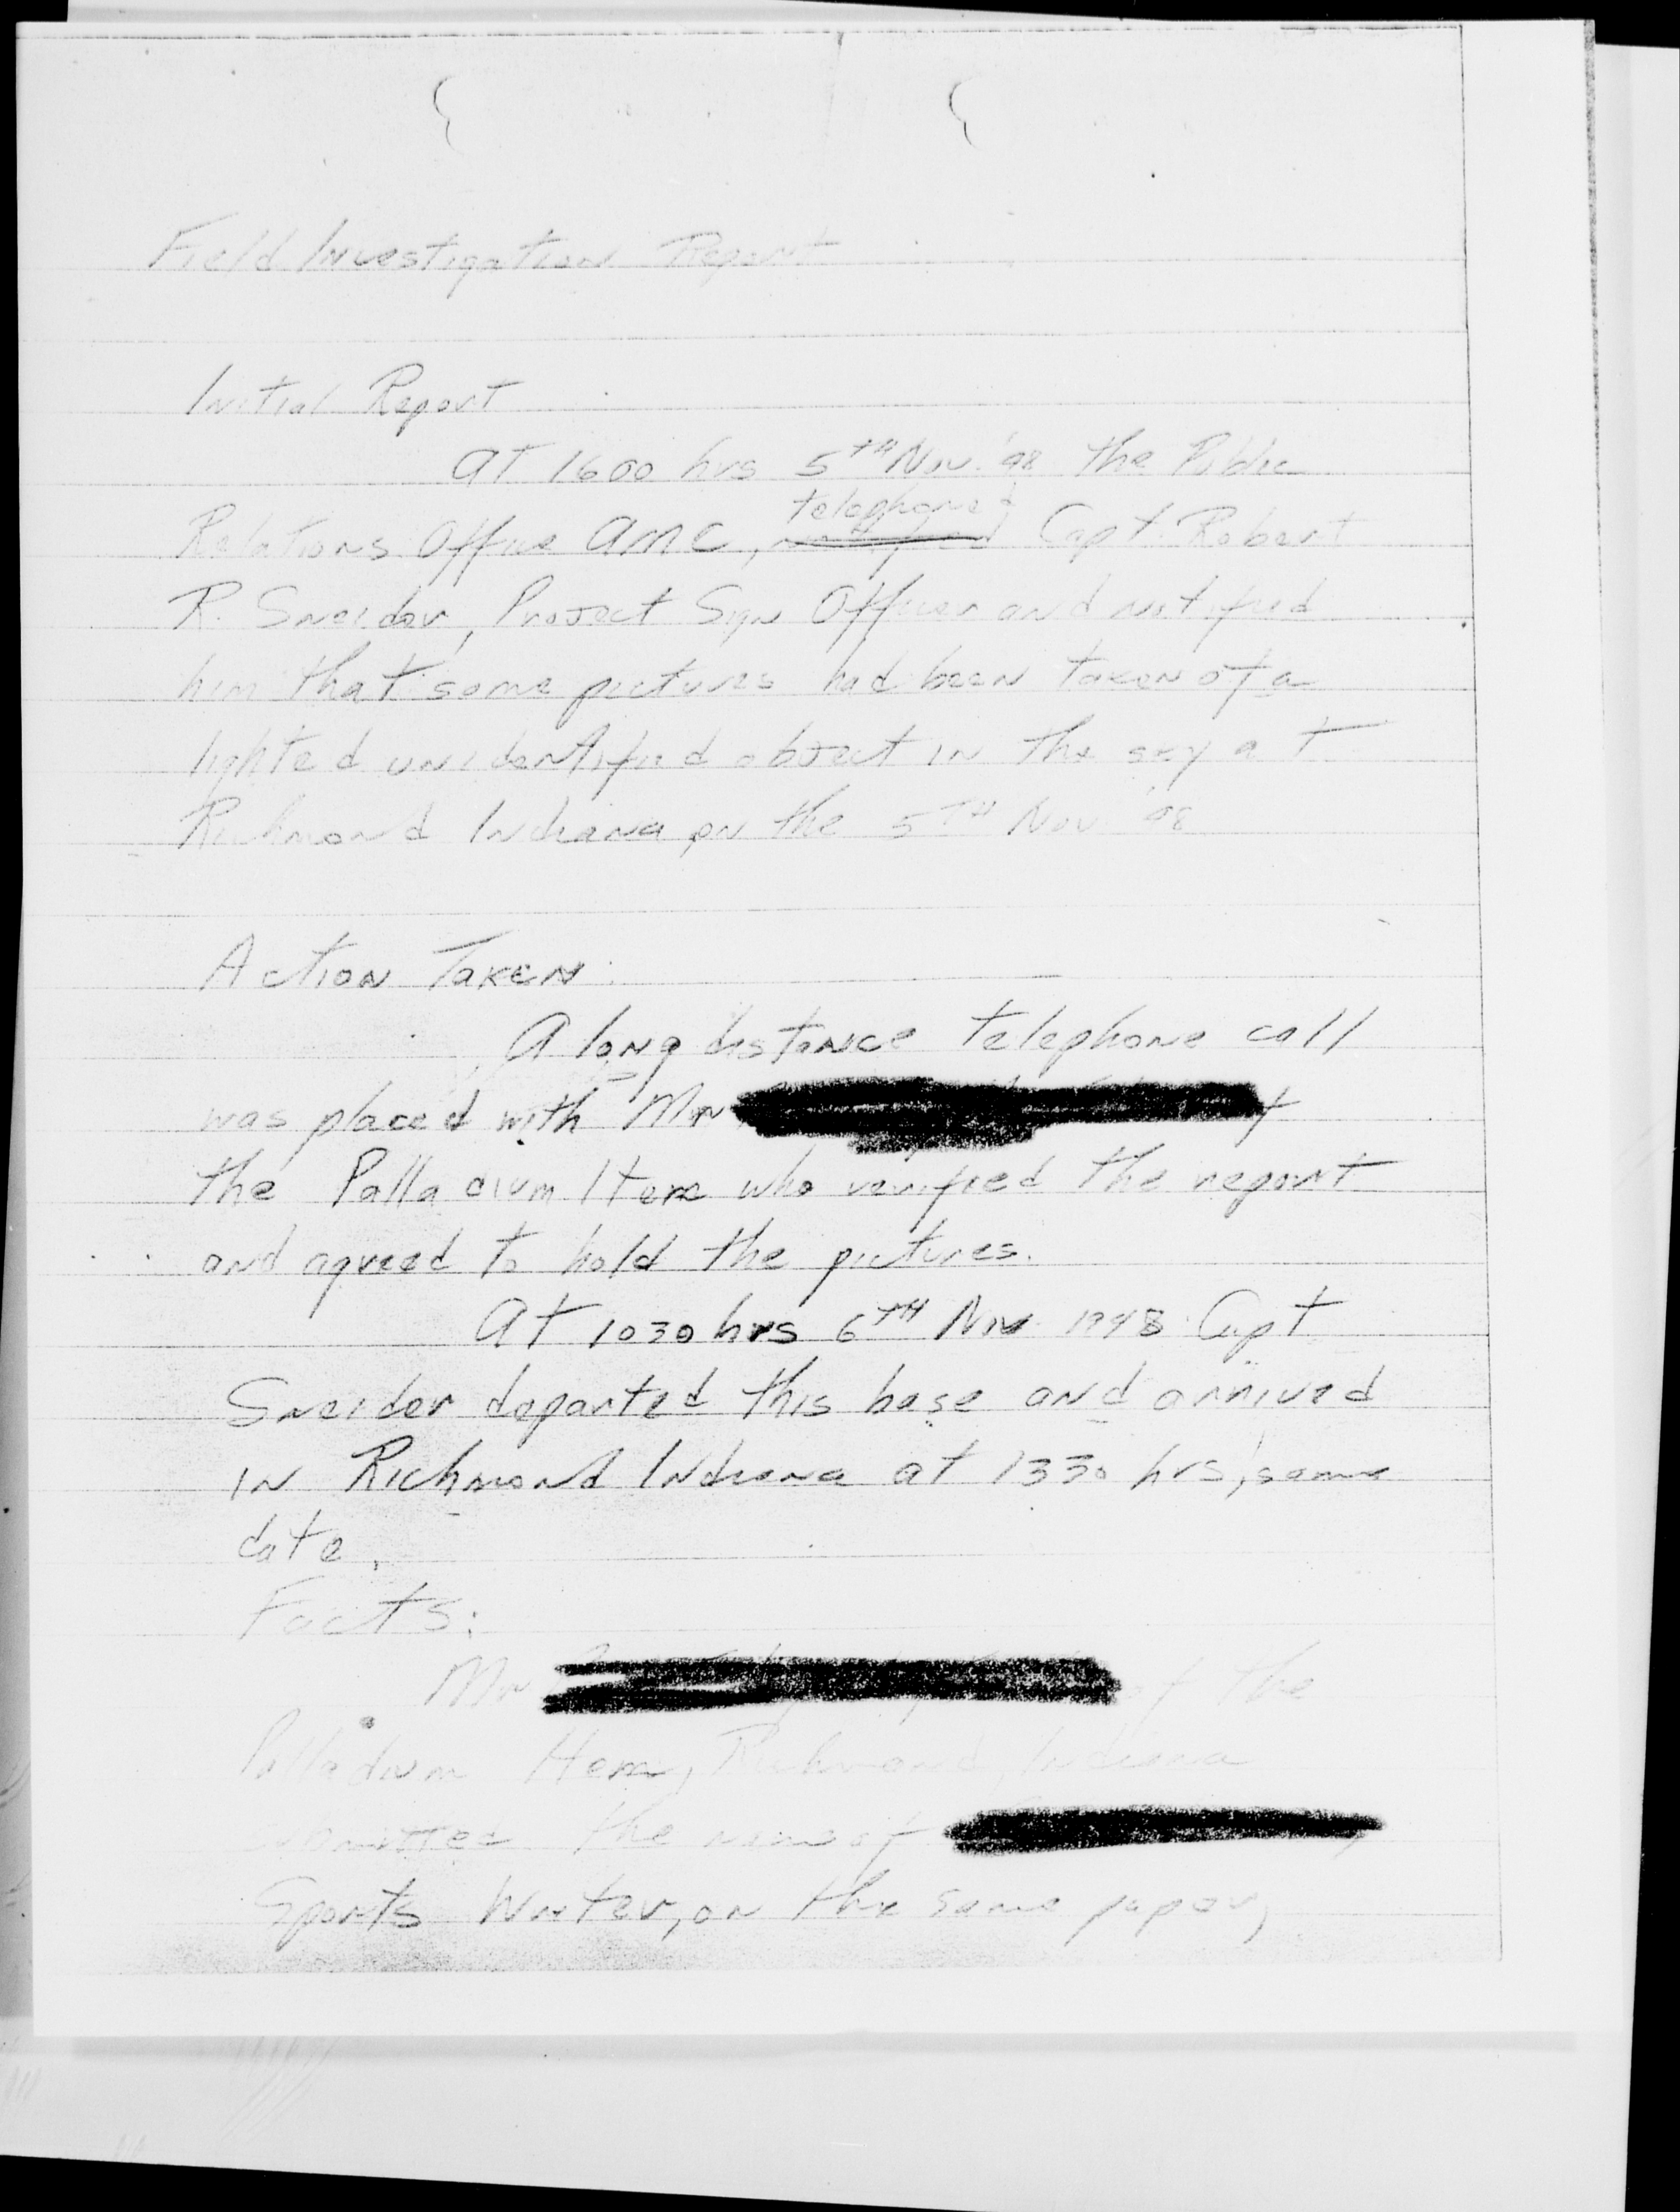 Field Investigation Report
Initial Report
At 1600 hrs 5TH Nov. '48 the Public
telephoned
Relations Office AMC, Capt. Robert
R. Sneider, Project Sign Officer and notified
him that some pictures had been taken of a
lighted unidentified object in the sky at
Richmond Indiana, on the 5TH Nov '48
Action Taken:
A long distance telephone call
was placed with Mr
the Palladium Item who verified the report
and agreed to hold the pictures.
At 1030 hrs 6TH Nov 1948 Capt
Sneider departed this base and arrived
in Richmond Indiana at 1330 hrs, same
date.
Facts:
Mr of the
Palladium Item, Richmond, Indiana
the name of
Sports Writer, on the same paper,